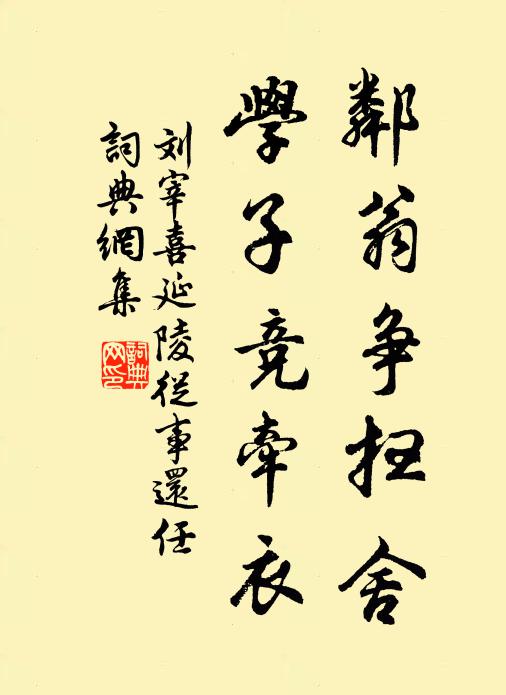 鄰翁争扫舍
學子竞牽衣
刘宰喜延陵從事還任
詞典網集
詞典网印